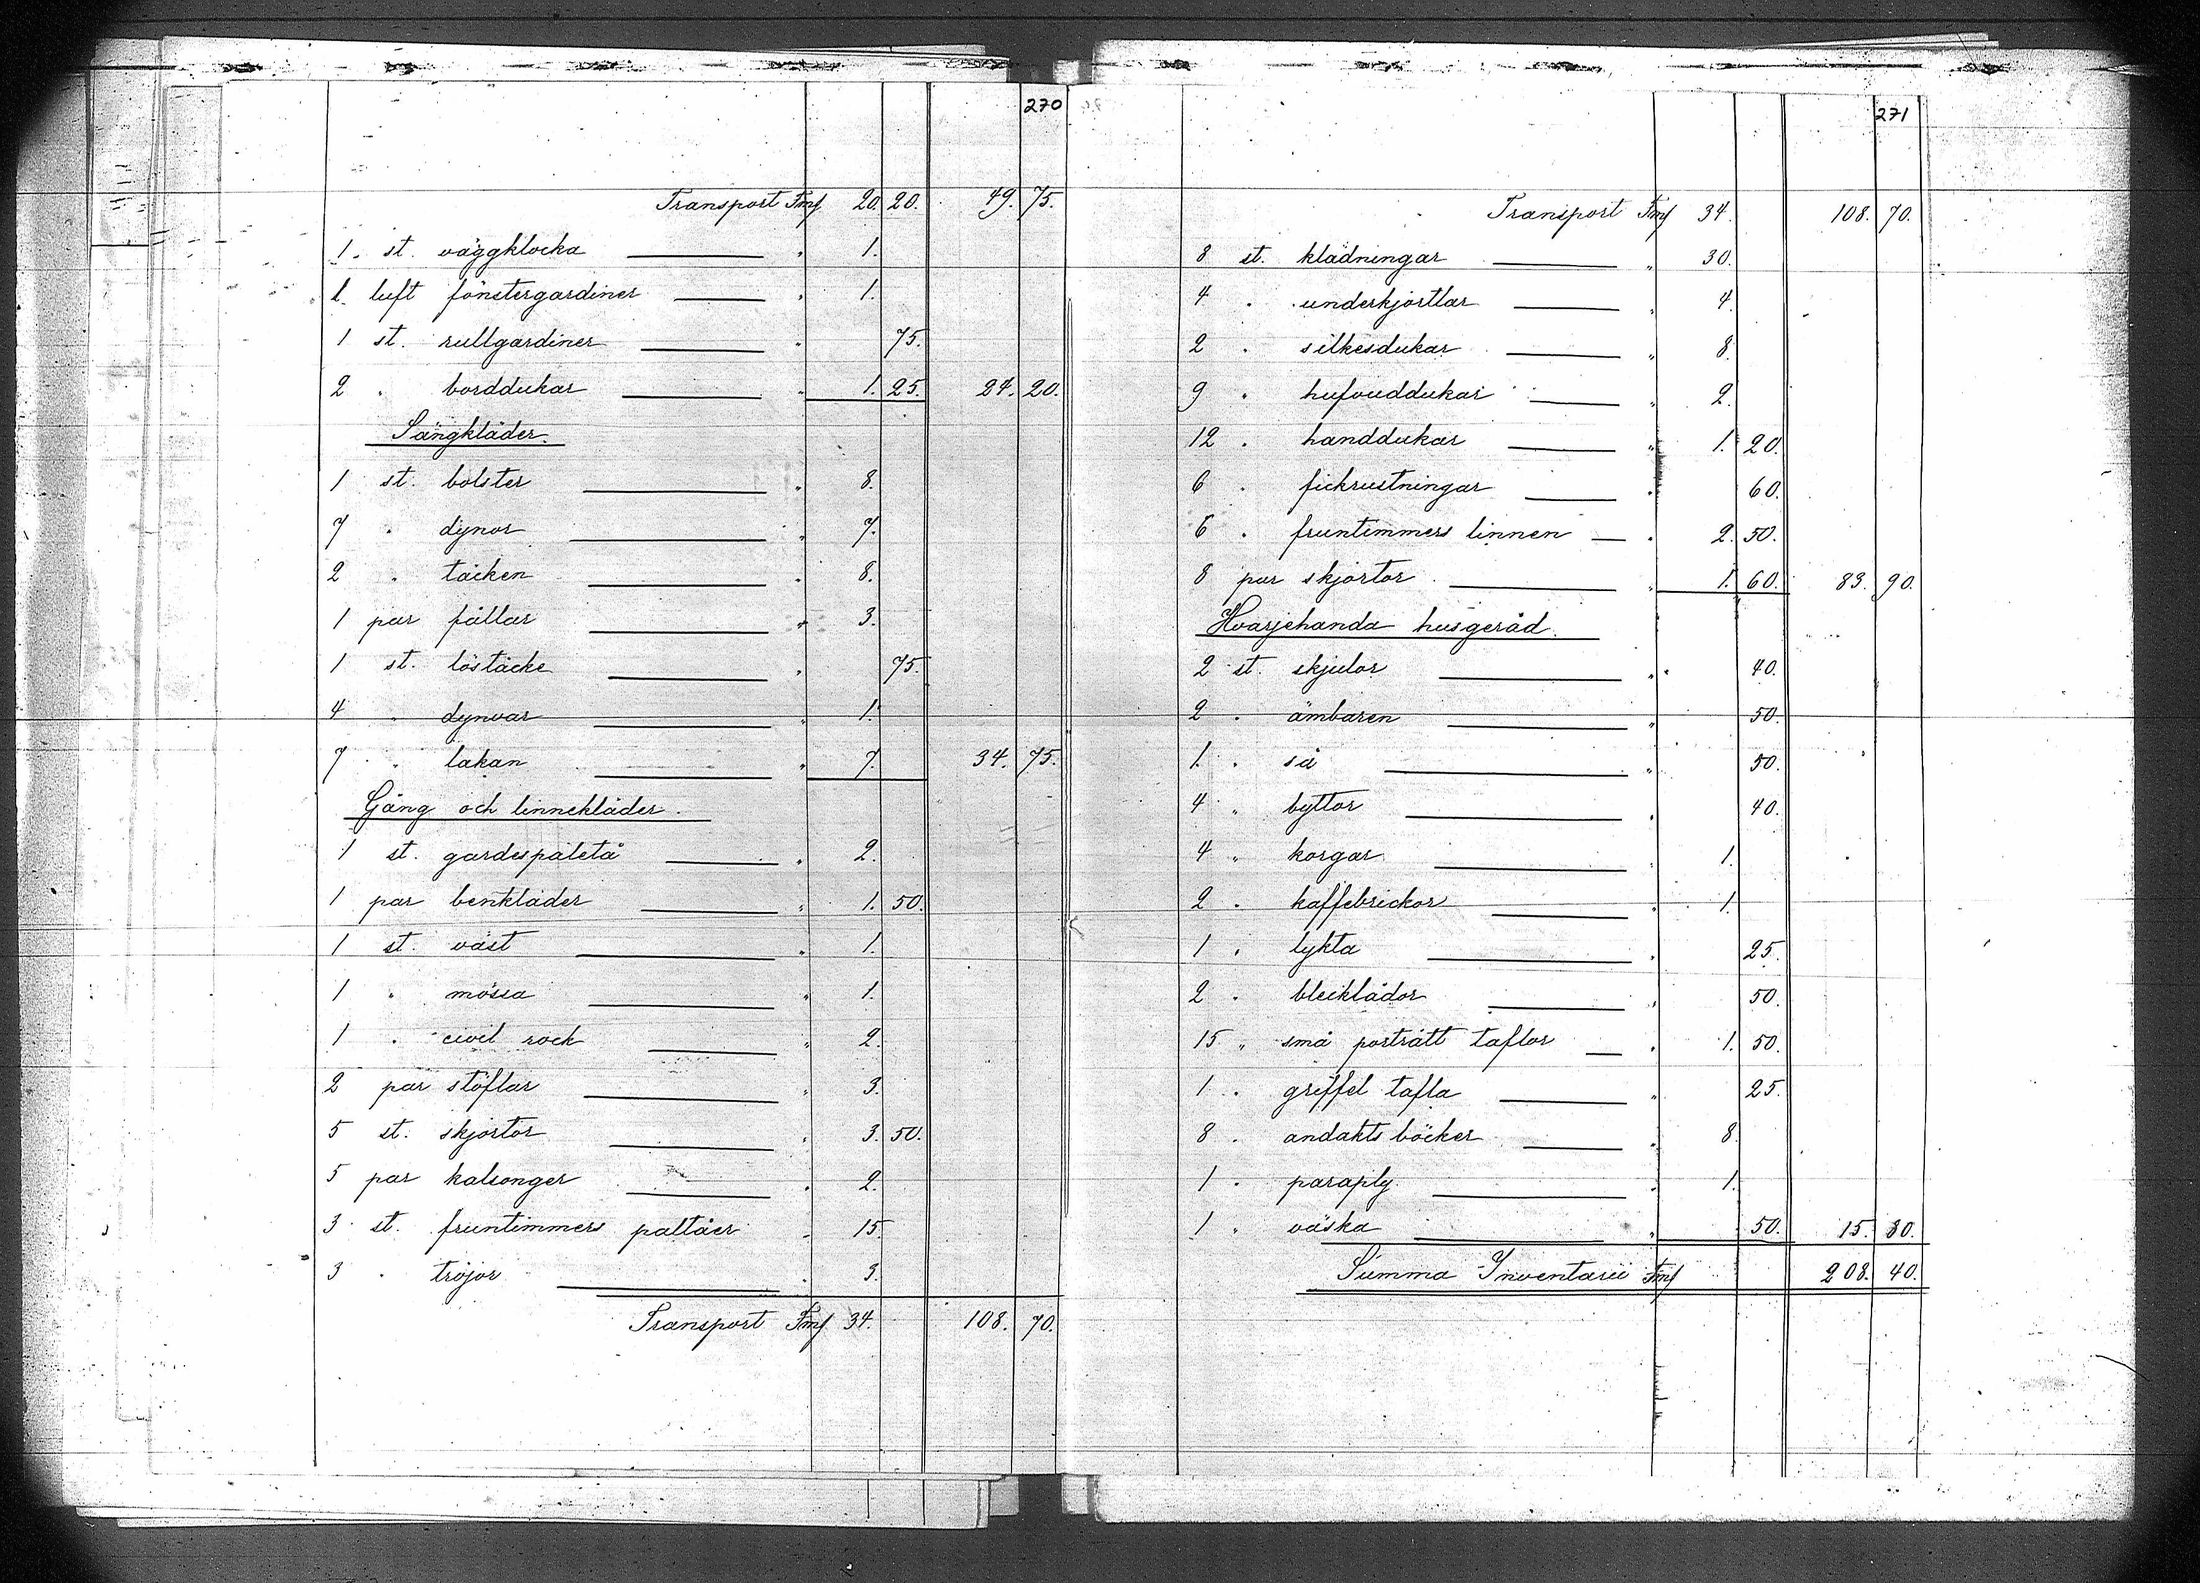 270
Transport Fmf 20. 20. 49. 75.
1. st. väggklocka " 1.
1. luft fönstergardiner " 1.
1 st. rullgardiner " 75.
2 " borddukar " 1. 25. 24. 20.
Sängkläder.
1 st. bolster " 8.
7 " dynor " 7.
2 " täcken " 8.
1 par fällar " 3.
1 st. löstäcke " 75.
4 " dynvar " 1.
7 " lakan " 7. 34. 75.
Gång och linnekläder.
1 st. gardespaletå " 2.
1 par benkläder " 1. 50.
1 st. väst " 1.
1 " mössa " 1.
1 " civil rock " 2.
2 par stöflar " 3.
5 st. skjortor " 3. 50.
5 par kalsonger " 2.
3 st. fruntimmers paltåer " 15.
3 " tröjor " 3.
Transport Fmf 34. 108. 70.
271
Transport Fmf 34. 108. 70.
8 st. klädningar " 30.
4 " underkjortlar " 4.
2 " silkesdukar " 8.
9 " hufvuddukar " 2.
12 " handdukar " 1. 20.
6 " fickrustningar " 60.
6 " fruntimmers linnen " 2. 50.
8 par skjortor " 1. 60. 83. 90.
Hvarjehanda husgeråd.
2 st. skjulor " 40.
2 " ämbaren " 50.
1 " så " 50.
4 " byttor " 40.
4 " korgar " 1.
2 " kaffebrickor " 1.
1 " lykta " 25.
2 " blecklådor " 50.
15 " små porträtt taflor " 1. 50.
1 " griffel tafla " 25.
8 " andakts böcker " 8.
1 " paraply " 1.
1 " väska " 50. 15. 80.
Summa Inventarii Fmf 208. 40.